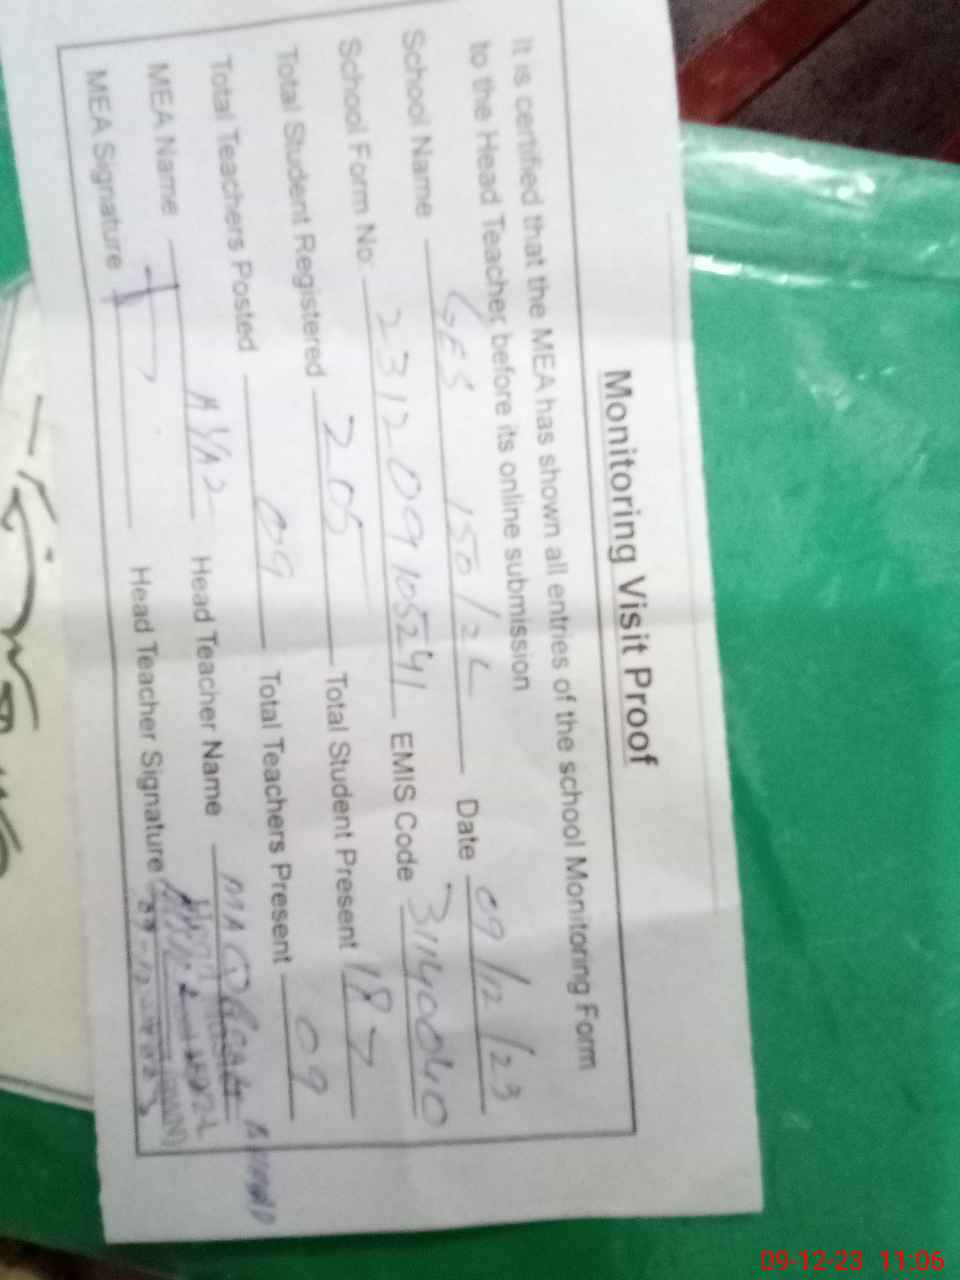 Monitoring Visit Proof
It is certified that the MEA has shown all entries of the school Monitoring Form
to the Head Teacher, before its online submission
School Name GES 150/2L Date 09/12/23
School Form No: 231209105241 EMIS Code 31140040
Total Student Registered 205 Total Student Present 187
Total Teachers Posted 09 Total Teachers Present 09
MEA Name Head Teacher Name AHMAD
MEA Signature Head Teacher Signature
09-12-23 11:06